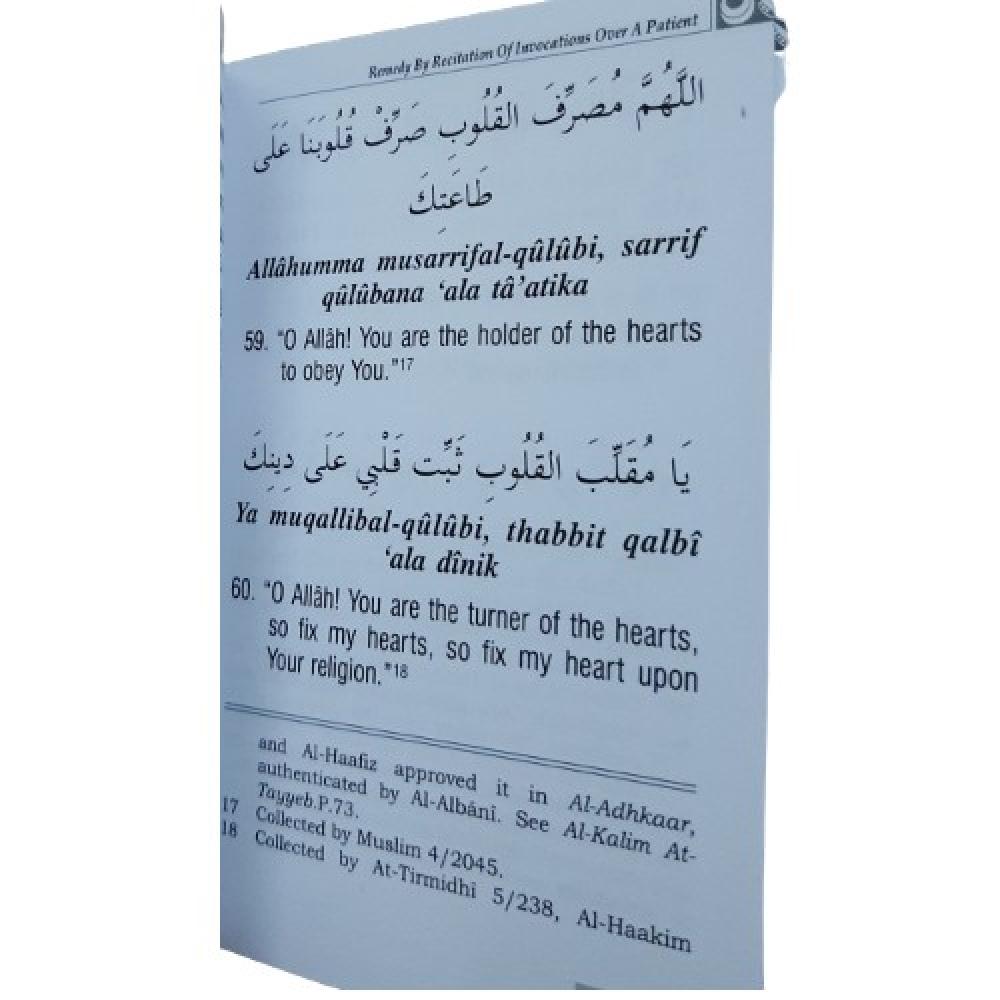 Remedy By Recitation Of Invocations Over A Patient
اللَّهُمَّ مُصَرِّفَ القُلُوبِ صَرِّفْ قُلُوبَنَا عَلَى
طَاعَتِكَ
Allâhumma musarrifal-qûlûbi, sarrif
qûlûbana ‘ala tâ’atika
59. "O Allâh! You are the holder of the hearts
to obey You."17
يَا مُقَلِّبَ القُلُوبِ ثَبِّت قَلْبِي عَلَى دِينِكَ
Ya muqallibal-qûlûbi, thabbit qalbî
‘ala dînik
60. "O Allâh! You are the turner of the hearts,
so fix my hearts, so fix my heart upon
Your religion."18
and Al-Haafiz approved it in Al-Adhkaar,
authenticated by Al-Albânî. See Al-Kalim At-
Tayyeb.P.73.
17 Collected by Muslim 4/2045.
18 Collected by At-Tirmidhî 5/238, Al-Haakim